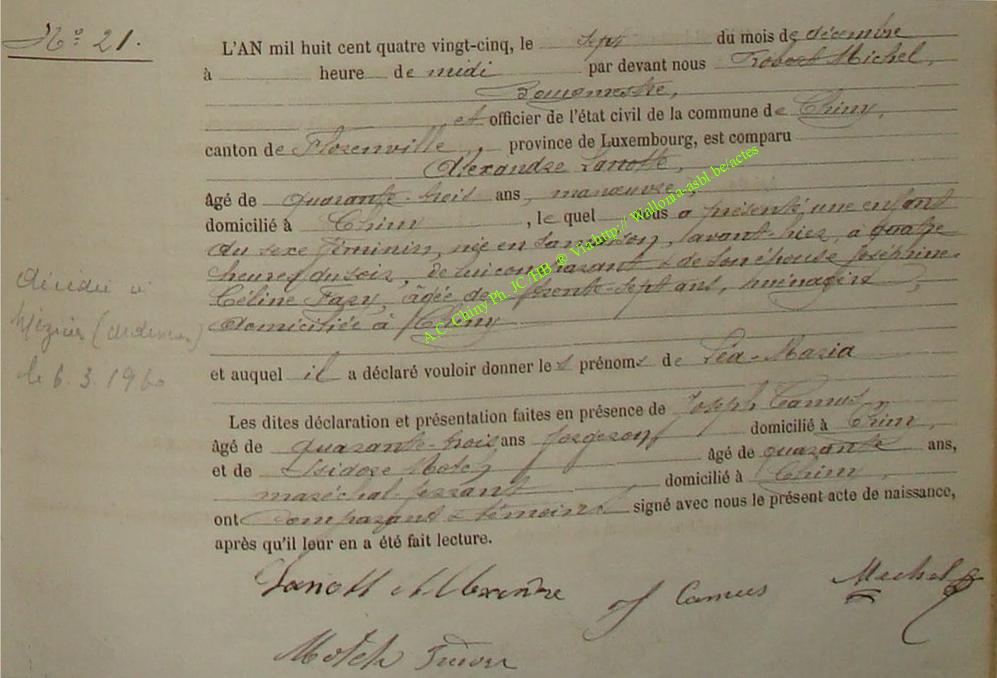 N° 21.
L'AN mil huit cent quatre vingt-cinq, le sept du mois de décembre
à heure de midi par devant nous Robert Michel,
Bourgmestre,
et officier de l'état civil de la commune de Chiny,
canton de Florenville, province de Luxembourg, est comparu
Alexandre Lanotte,
âgé de quarante-trois ans, manœuvre,
domicilié à Chiny, le quel nous a présenté une enfant
du sexe féminin, née en sa maison, avant-hier, à quatre
heures du soir, de lui comparant & de son épouse Joséphine-
Céline Fary, âgée de trente-sept ans, ménagère,
domiciliée à Chiny
et auquel il a déclaré vouloir donner les prénoms de Léa-Maria
Les dites déclaration et présentation faites en présence de Joseph Camus,
âgé de quarante-trois ans forgeron, domicilié à Chiny,
et de Isidore Motch âgé de quarante ans,
maréchal-ferrant domicilié à Chiny
ont comparant & témoins signé avec nous le présent acte de naissance,
après qu'il leur en a été fait lecture.
décédée à
(Ardennes)
le 6.3.1960
A C- Chiny Ph. JC/HB @ Via http:// Wallonia-asbl be/actes
Lanott Alexandre J Camus Michel
Motch